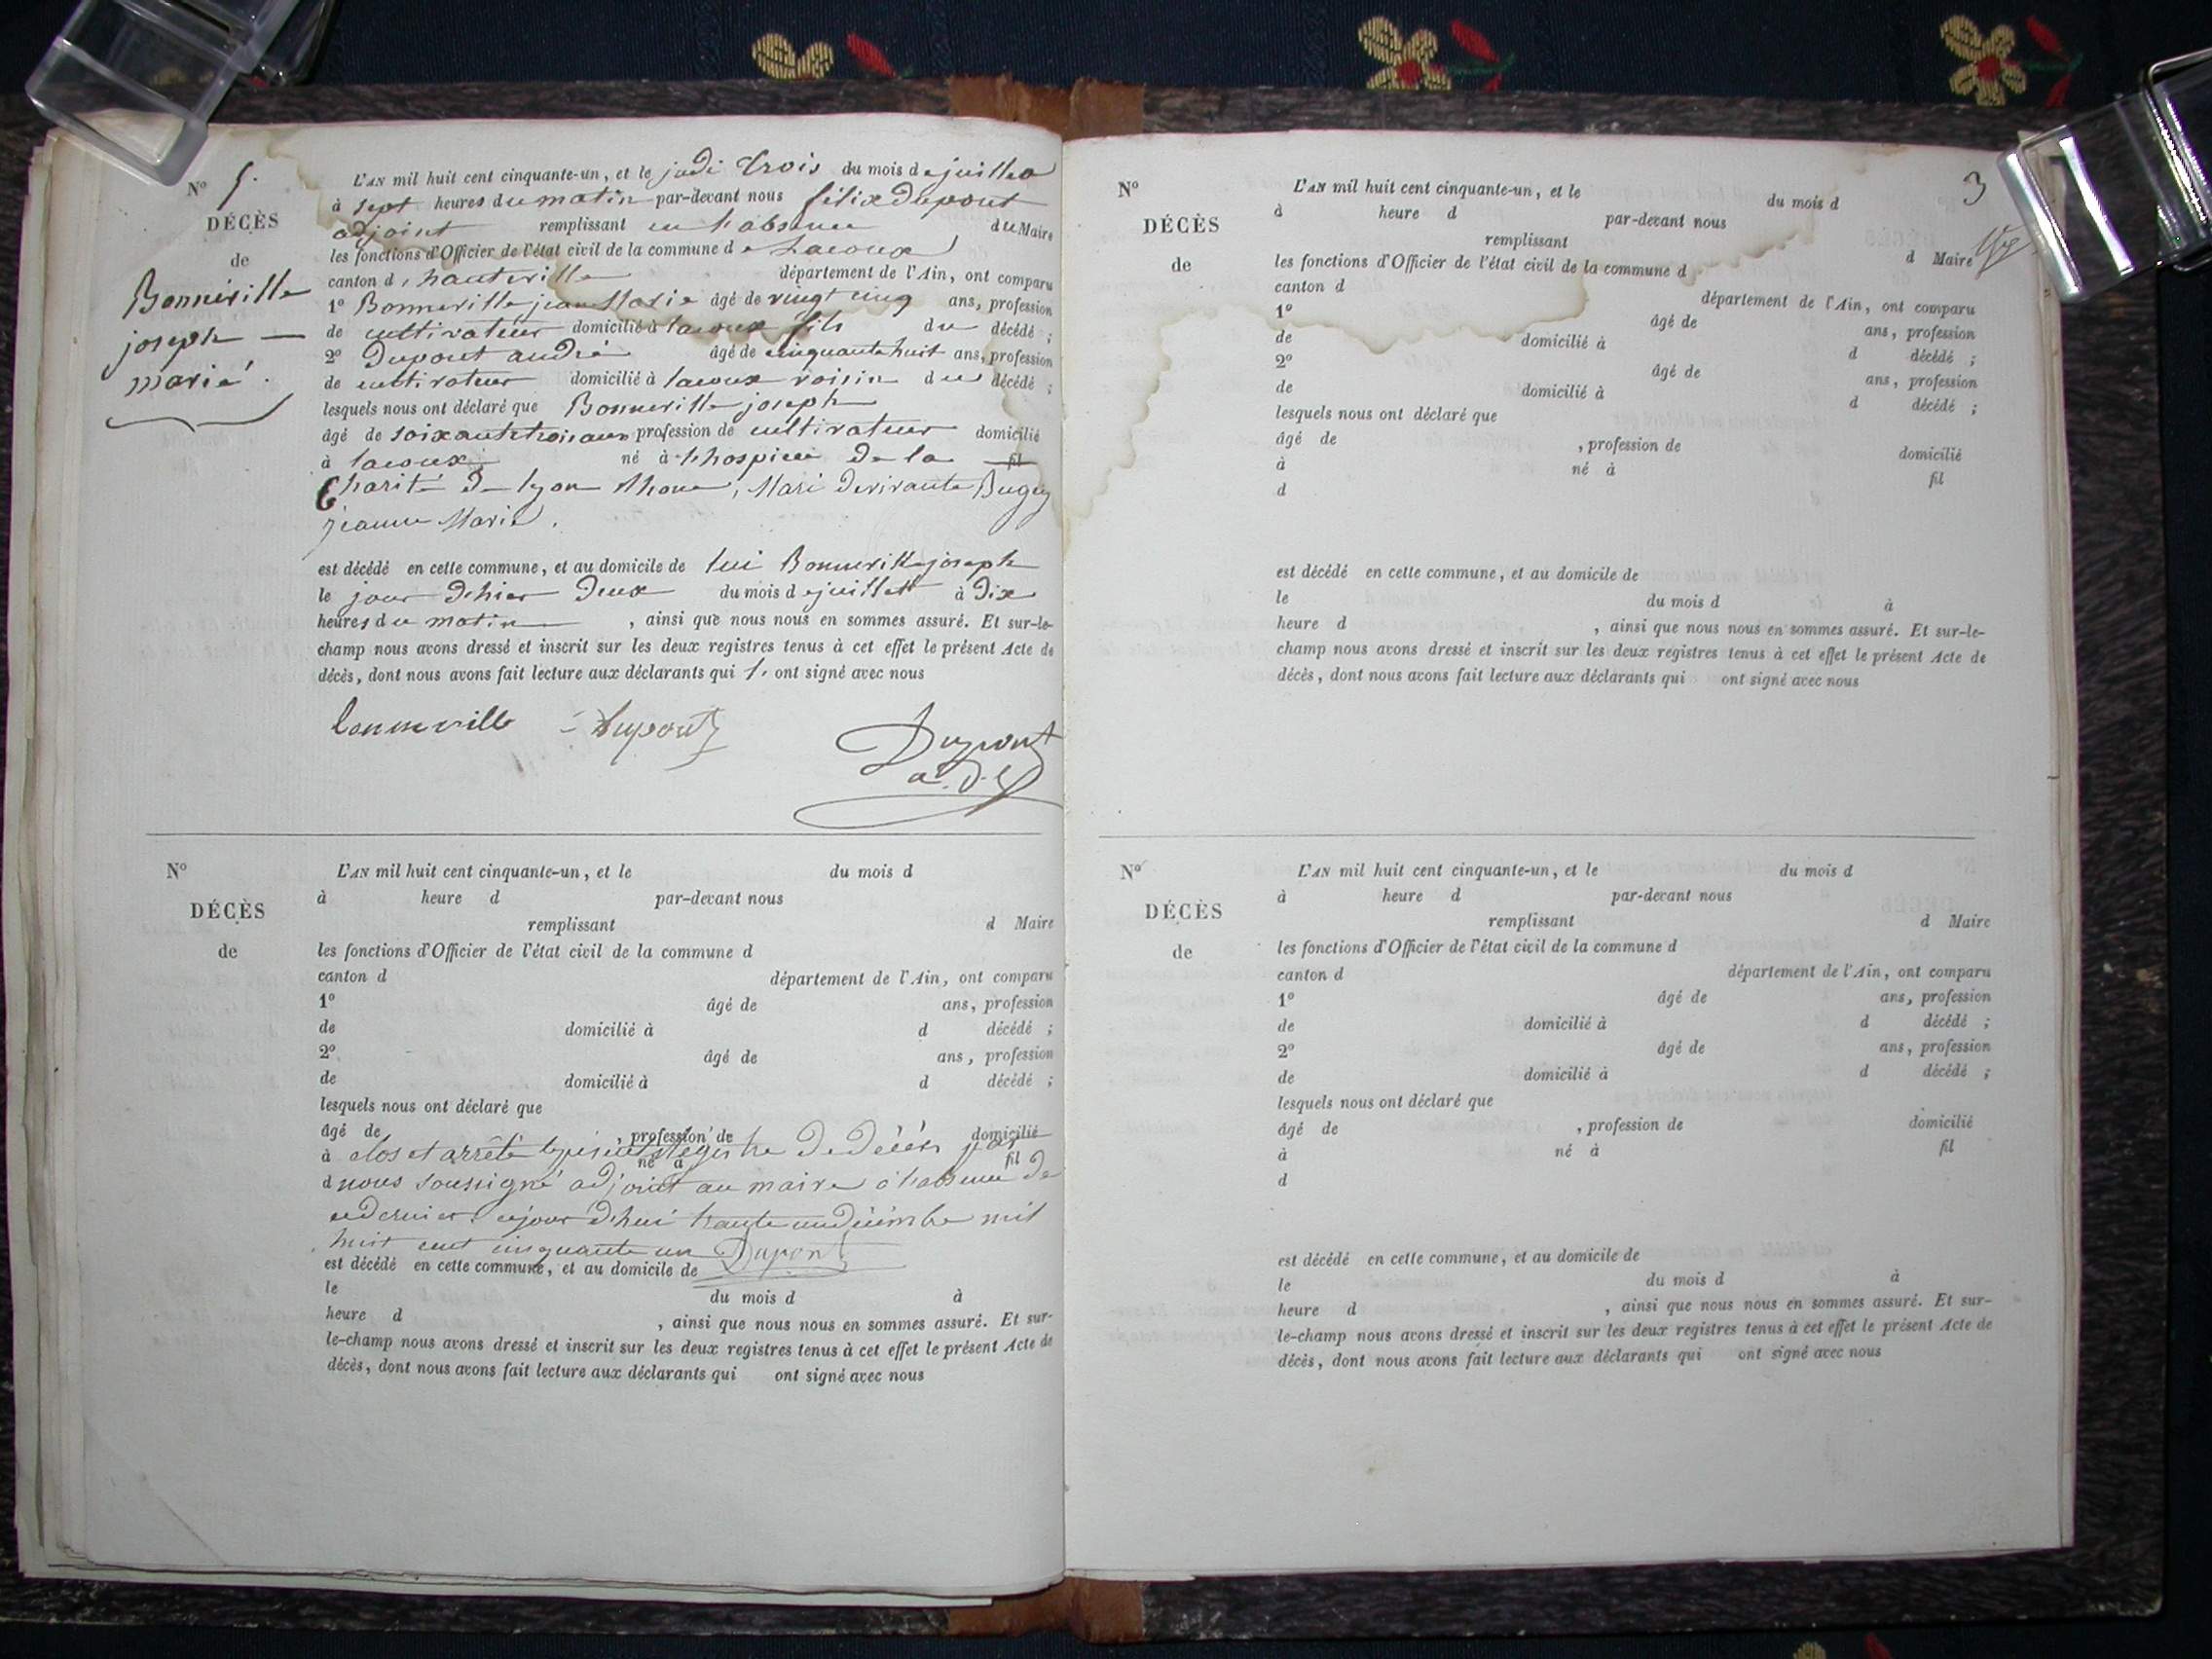 N° 5.
DÉCÈS
de
Bonneville
joseph —
marié.
L'AN mil huit cent cinquante-un, et le judi trois du mois de juillet
à sept heures du matin par-devant nous félix dupont
adjoint remplissant en l'absence du Maire
les fonctions d'Officier de l'état civil de la commune de Lacoux
canton d'hauteville département de l'Ain, ont comparu
1° Bonneville jean Marie âgé de vingt cinq ans, profession
de cultivateur domicilié à lacoux fils du décédé ;
2° Dupont andré âgé de cinquante huit ans, profession
de cultivateur domicilié à lacoux voisin du décédé ;
lesquels nous ont déclaré que Bonneville joseph
âgé de soixante trois ans profession de cultivateur domicilié
à lacoux né à l'hospice de la fil
Charité de lyon Rhone, Mari devivante Bugey
jeanne Marie.
est décédé en cette commune, et au domicile de lui Bonneville joseph
le jour d'hier deux du mois de juillet à dix
heures du matin , ainsi que nous nous en sommes assuré. Et sur-le-
champ nous avons dressé et inscrit sur les deux registres tenus à cet effet le présent Acte de
décès, dont nous avons fait lecture aux déclarants qui l. ont signé avec nous
bonneville Dupont Dupont
a.d.
N°
DÉCÈS
de
L'AN mil huit cent cinquante-un, et le du mois d
à heure d par-devant nous
remplissant d Maire
les fonctions d'Officier de l'état civil de la commune d
canton d département de l'Ain, ont comparu
1° âgé de ans, profession
de domicilié à d décédé ;
2° âgé de ans, profession
de domicilié à d décédé ;
lesquels nous ont déclaré que
âgé de , profession de domicilié
à né à fil
d
clos et arrêté le présent Registre de décès par
nous soussigné adjoint au maire à l'absence de
ce dernier. cejour d'hui trente un décembre mil
huit cent cinquante un Dupont
est décédé en cette commune, et au domicile de
le du mois d à
heure d , ainsi que nous nous en sommes assuré. Et sur-
le-champ nous avons dressé et inscrit sur les deux registres tenus à cet effet le présent Acte de
décès, dont nous avons fait lecture aux déclarants qui ont signé avec nous
3
N°
DÉCÈS
de
L'AN mil huit cent cinquante-un, et le du mois d
à heure d par-devant nous
remplissant d Maire
les fonctions d'Officier de l'état civil de la commune d
canton d département de l'Ain, ont comparu
1° âgé de ans, profession
de domicilié à d décédé ;
2° âgé de ans, profession
de domicilié à d décédé ;
lesquels nous ont déclaré que
âgé de , profession de domicilié
à né à fil
d
est décédé en cette commune, et au domicile de
le du mois d à
heure d , ainsi que nous nous en sommes assuré. Et sur-le-
champ nous avons dressé et inscrit sur les deux registres tenus à cet effet le présent Acte de
décès, dont nous avons fait lecture aux déclarants qui ont signé avec nous
N°
DÉCÈS
de
L'AN mil huit cent cinquante-un, et le du mois d
à heure d par-devant nous
remplissant d Maire
les fonctions d'Officier de l'état civil de la commune d
canton d département de l'Ain, ont comparu
1° âgé de ans, profession
de domicilié à d décédé ;
2° âgé de ans, profession
de domicilié à d décédé ;
lesquels nous ont déclaré que
âgé de , profession de domicilié
à né à fil
d
est décédé en cette commune, et au domicile de
le du mois d à
heure d , ainsi que nous nous en sommes assuré. Et sur-
le-champ nous avons dressé et inscrit sur les deux registres tenus à cet effet le présent Acte de
décès, dont nous avons fait lecture aux déclarants qui ont signé avec nous